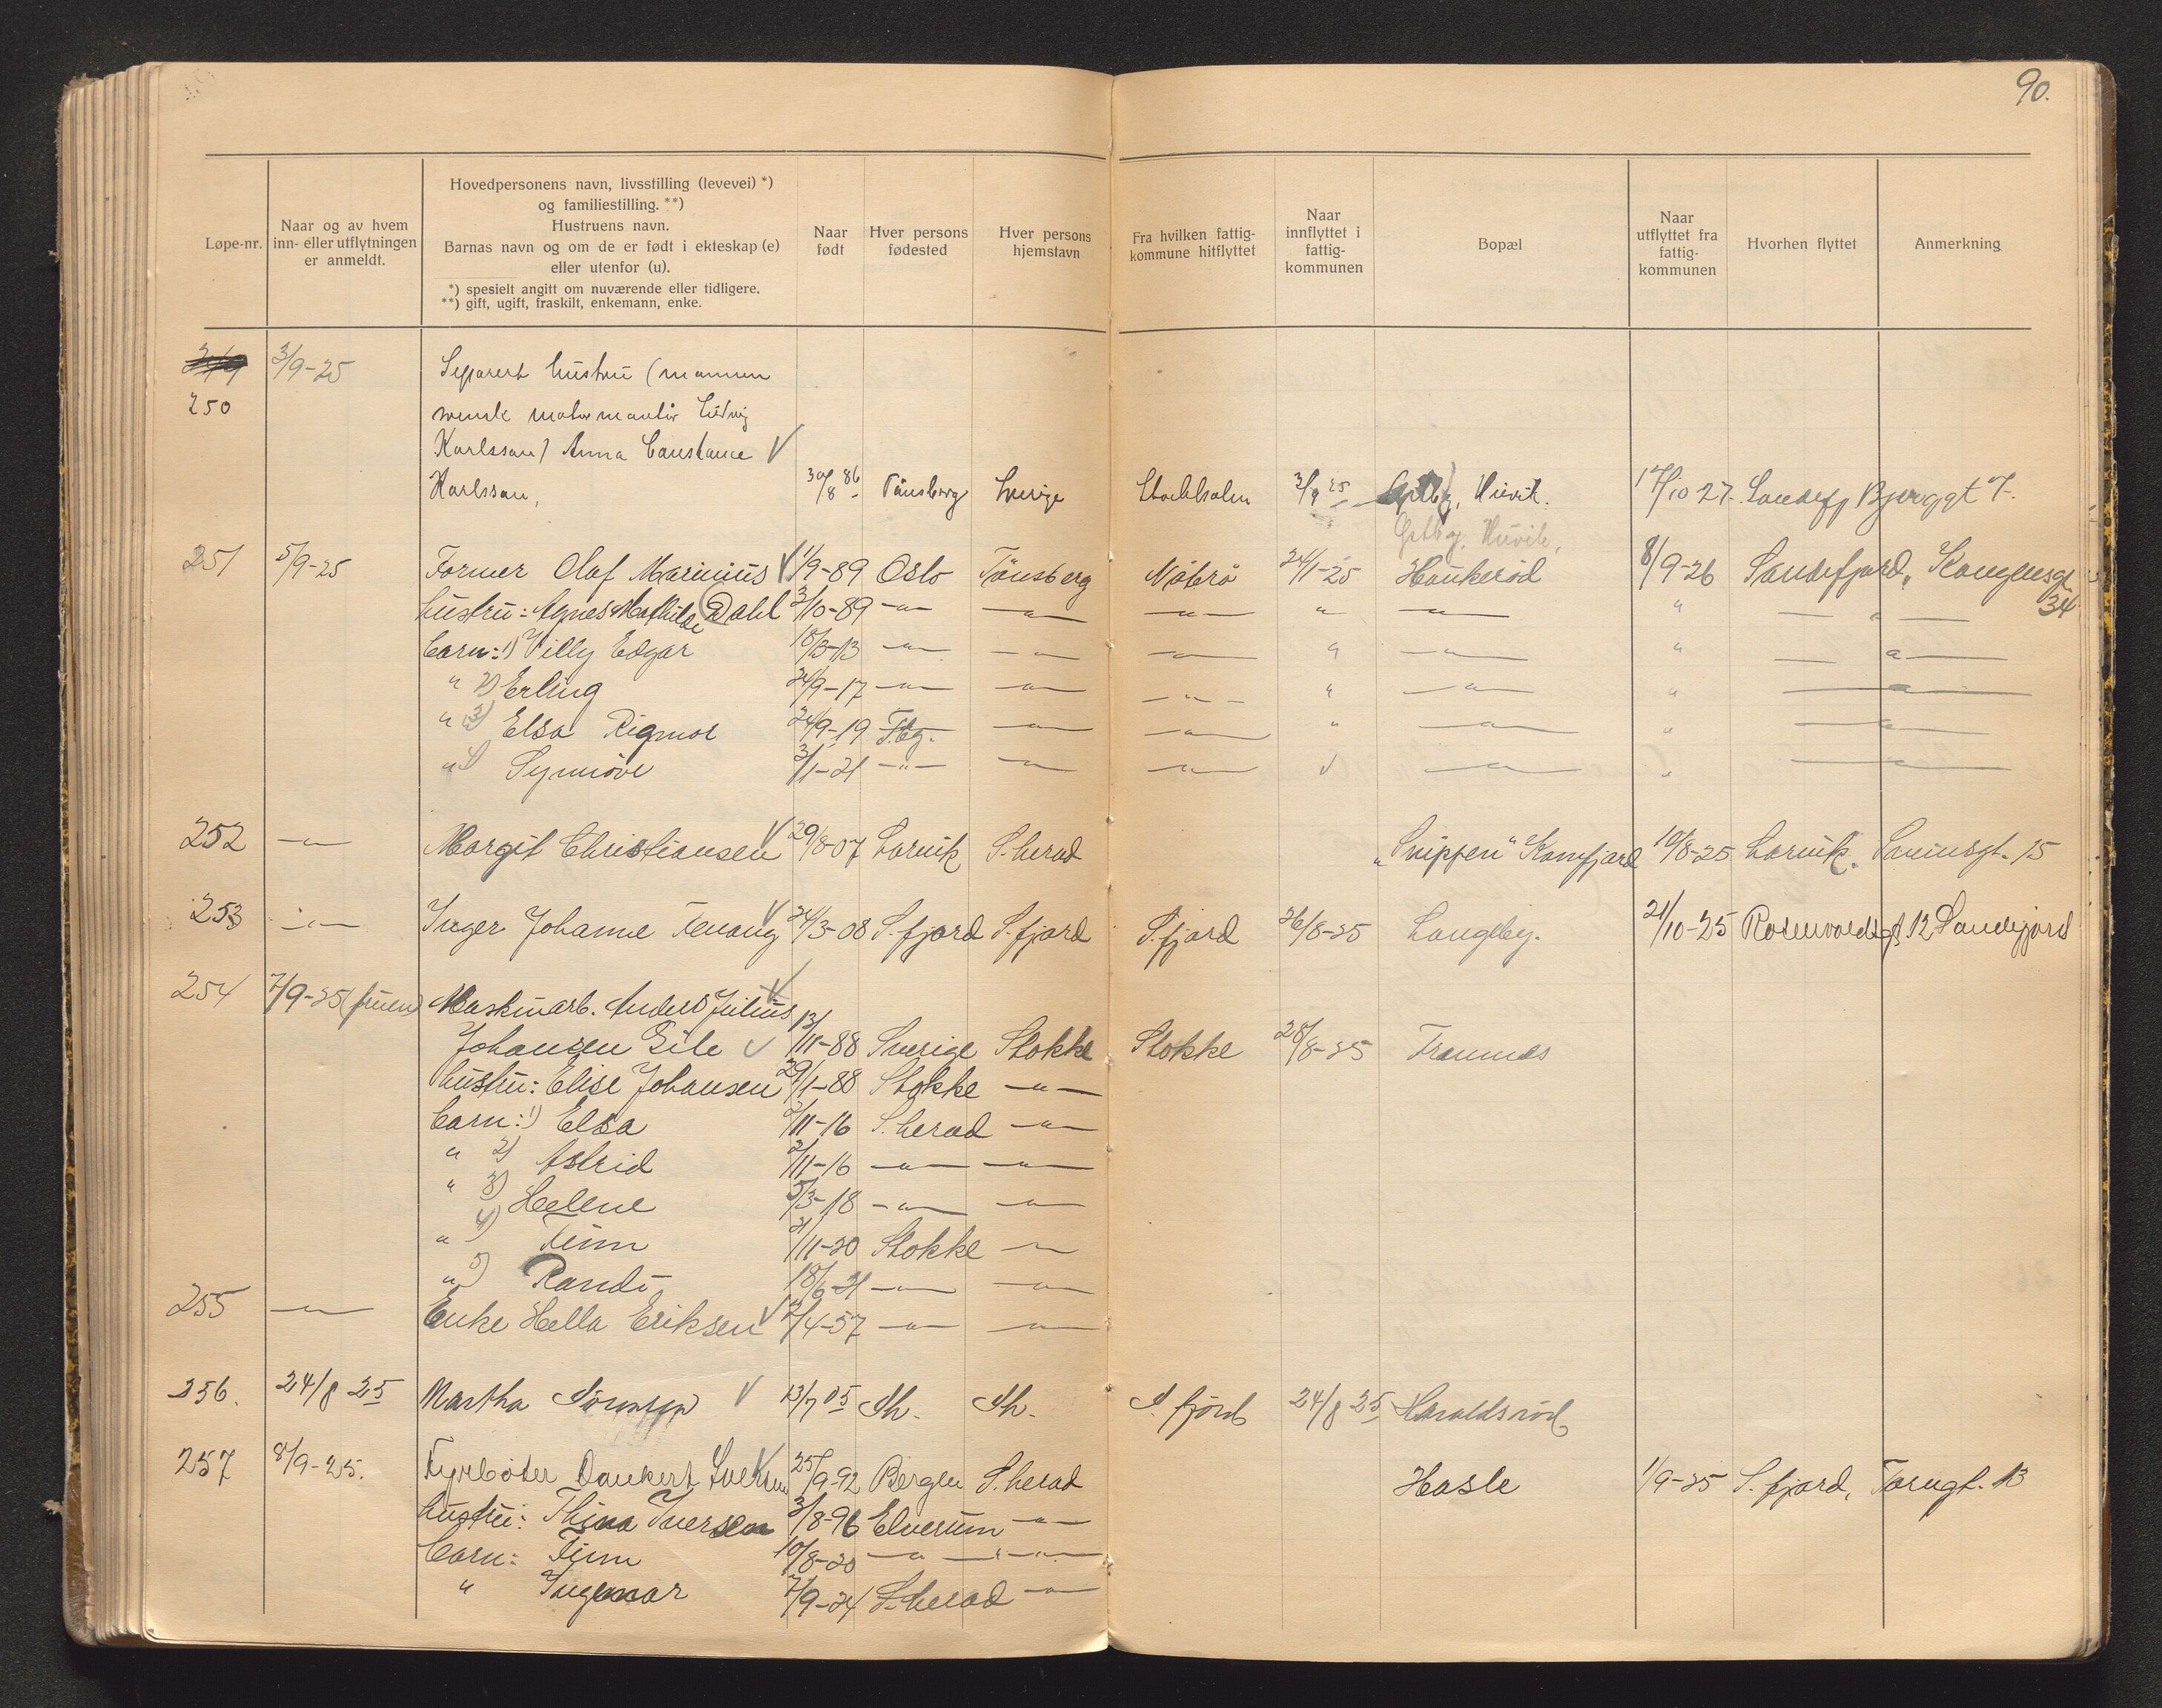 90.
Løpe-nr.
Naar og av hvem inn- eller utflytningen er anmeldt.
Hovedpersonens navn, livsstilling (levevei) *)
og familiestilling. **)
Hustruens navn.
Barnas navn og om de er født i ekteskap (e)
eller utenfor (u).
*) spesielt angitt om nuværende eller tidligere.
**) gift, ugift, fraskilt, enkemann, enke.
Naar født
Hver persons fødested
Hver persons hjemstavn
Fra hvilken fattigkommune hitflyttet
Naar innflyttet i fattigkommunen
Bopæl
Naar utflyttet fra fattigkommunen
Hvorhen flyttet
Anmerkning
249 3/9-25 Separert hustru (mannen
250 svensk
Karlsson) Anna Constance V
Karlsson, 30/8 86 Tønsberg Sverige Stockholm 3/9 25 Gokstad, Huvik. 17/10 27 Sandefj Bjerggt 7.
Huvik,
251 5/9-25 Former Olaf Marinius V 1/9-89 Oslo Tönsberg Nøtrø 24/1-25 Haukerød 8/9-26 Sandefjord, Kongensgt
34
hustru: Agnes Mathilde Dahl 3/10-89 -"- -"- -"- " -"- " -"-
barn: 1) Villy Edgar 18/3-13 -"- -"- -"- " -"- " -"-
" 2) Erling 24/9-17 -"- -"- -"- " -"- " -"-
" 3) Elsa Rigmor 24/9-19 T.bg. -"- -"- " -"- " -"-
" 4) Synnöve 3/1-21 -"- -"- -"- " -"- " -"-
252 -"- Margit Christiansen V 29/8-07 Larvik S.herad "Snippen" Kamfjord 10/8-25 Larvik. 15
253 -"- Inger Johanne V 24/3-08 S.fjord S.fjord S.fjord 26/8-25 Langeby. 21/10-25 Rosenvoldsgt 12 Sandefjord
254 7/9-25 (fruen) Maskinarb. Anders Julius V
Johansen V 13/11-88 Sverige Stokke Stokke 28/8-25 Framnes
hustru: Elise Johansen 29/1-88 Stokke -"-
barn: 1) Elsa 2/11-16 S.herad -"-
" 2) Astrid 2/11-16 -"- -"-
" 3) Helene 5/3-18 -"- -"-
" 4) Finn 21/11-20 Stokke -"-
" 5) Randi 18/6-21 -"- -"-
255 -"- Enke Hella Eriksen V 2/4-57 -"- -"-
256. 24/8 25 Martha V 13/7 05 Sh. Sh. S. fjord 24/8 25 Haraldsrød
257 8/9-25. Fyrbøter Dankert V 25/9-92 Bergen S.herad Hasle 1/9-25 S.fjord, Torvgt. 13
hustru: Thina Iversen 3/8-96 Elverum -"-
barn: Finn 10/8-20 -"- -"-
" Ingemar 7/9-24 S.herad -"-